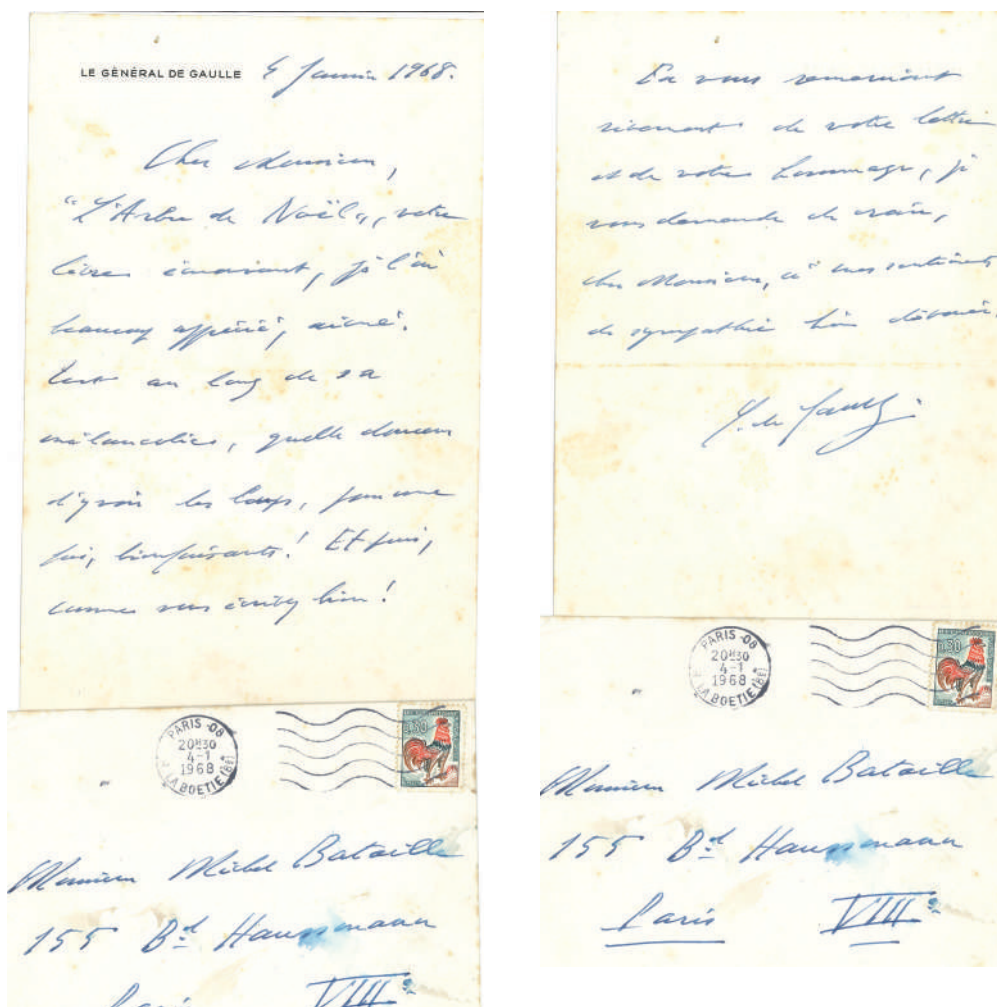 LE GÉNÉRAL DE GAULLE 4 Janvier 1968.
Cher Monsieur,
"L'Arbre de Noël", votre
livre émouvant, je l'ai
beaucoup apprécié, aimé.
Tout au long de sa
mélancolie, quelle douceur
d'y voir les loups, pour une
fois, bienfaisants! Et puis,
comme vous écrivez bien!
PARIS -08
20H30
4-1
1968
R. LA BOETIE (8E)
0,30
Monsieur Michel Bataille
155 Bd Haussmann
Paris VIIIe
En vous remerciant
vivement de votre lettre
et de votre hommage, je
vous demande de croire,
cher Monsieur, à mes sentiments
de sympathie bien dévoués.
C. de Gaulle.
PARIS -08
20H30
4-1
1968
R. LA BOETIE (8E)
0,30
Monsieur Michel Bataille
155 Bd Haussmann
Paris VIIIe